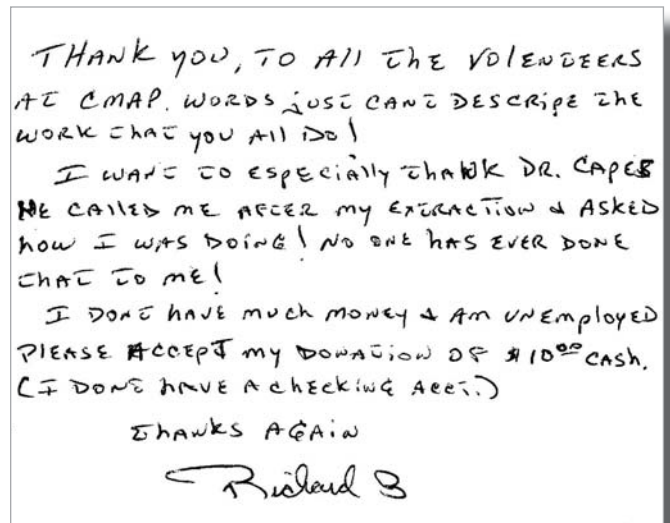 THANK YOU, TO All The VOlENTEERS
AT CMAP. WORDS just CANT DESCRipE The
WORK That you All DO!
I WANT TO ESpECiAlly ThANK DR. CAPES
HE CAllED ME AFTER my EXTRACTION & ASKED
how I WAS DOiNG! NO ONE hAS EVER DONE
ThAT TO ME!
I DONT hAVE much MONEy & Am UNEmployED
PlEASE ACCEPT my DONATiON OF $10⁰⁰ CASh.
(I DONT hAVE A chEckiNG ACCT.)
ThANKS AGAiN
Richard B